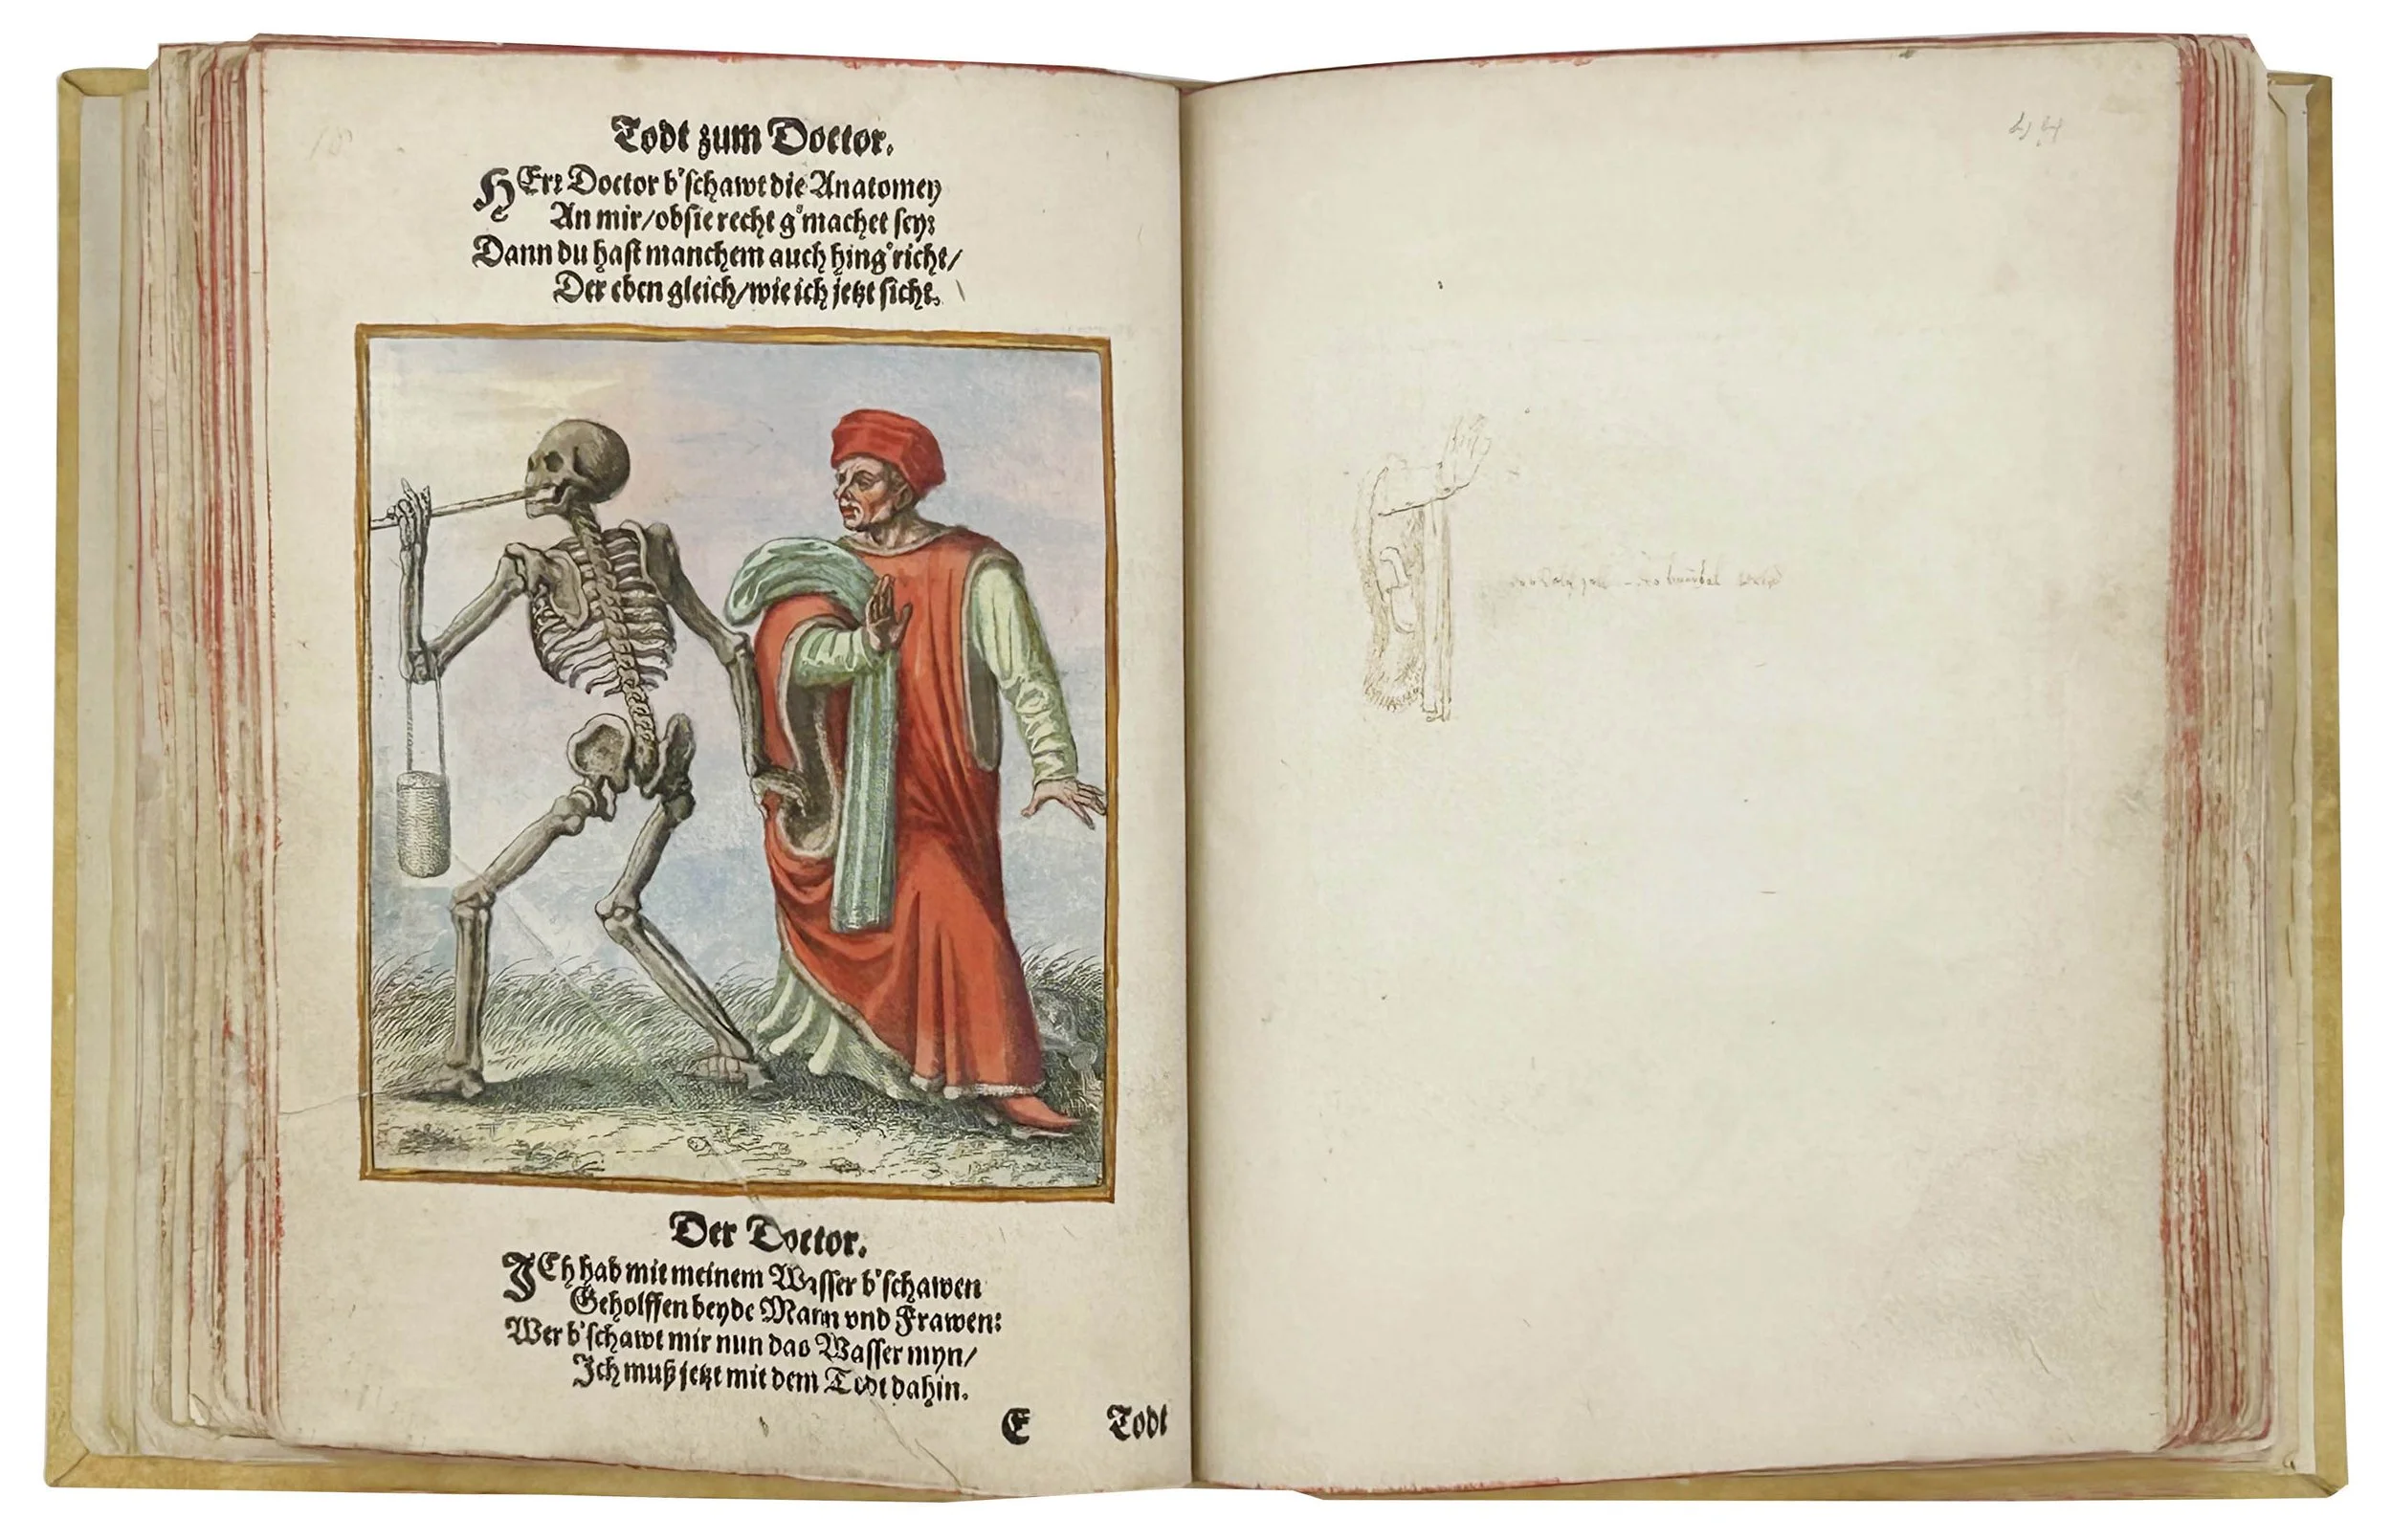 Todt zum Doctor.
HErꝛ Doctor b'schawt die Anatomey
An mir/ob sie recht g'machet sey:
Dann du hast manchem auch hing'richt/
Der eben gleich/wie ich jetzt sicht.
Der Doctor.
ICh hab mit meinem Wasser b'schawen
Geholffen beyde Mann vnd Frawen:
Wer b'schawt mir nun das Wasser myn/
Ich muß jetzt mit dem Todt dahin.
E Todt